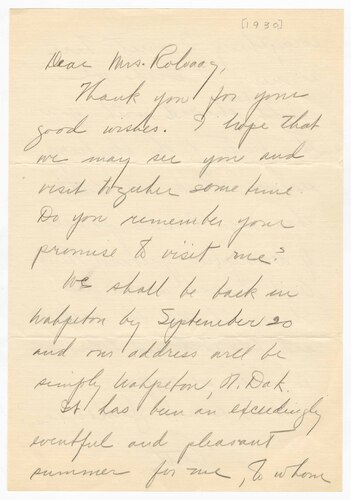 [1930]
Dear Mrs. Rolvaag,
Thank you for your
good wishes. I hope that
we may see you and
visit together some time.
Do you remember your
promise to visit me?
We shall be back in
Wahpeton by September 20
and our address will be
simply Wahpeton, N. Dak.
It has been an exceedingly
eventful and pleasant
summer for me, to whom